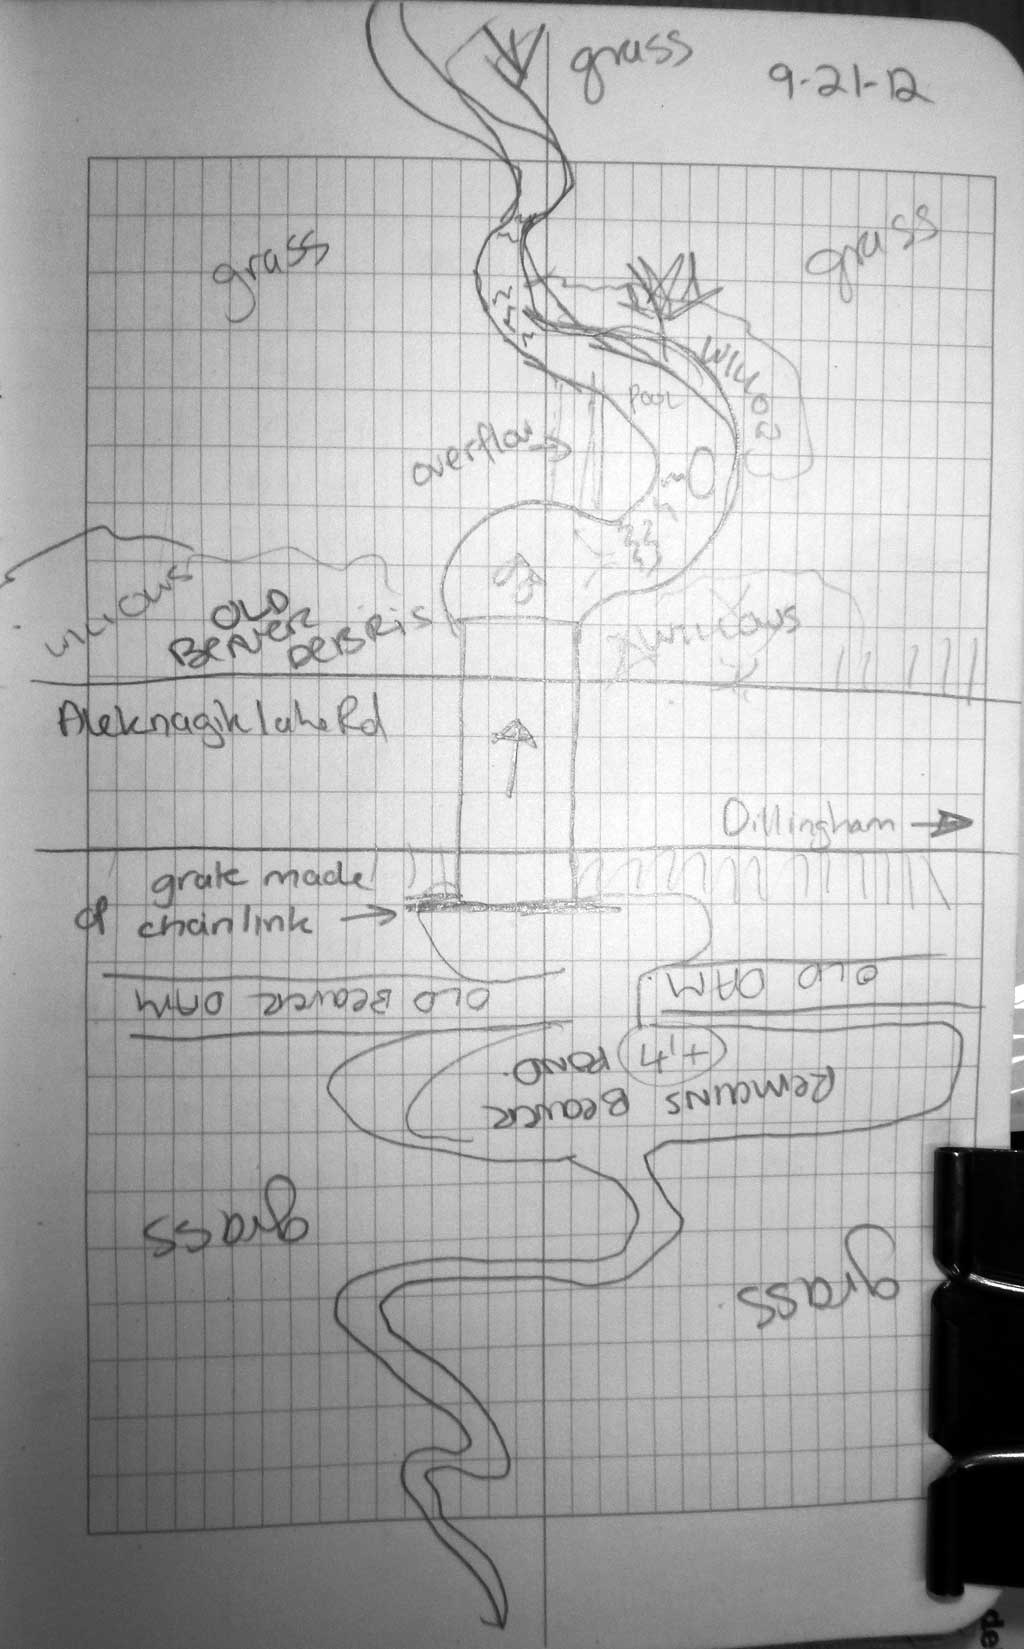 grass
9-21-12
grass
grass
WILLOW
POOL
overflow
willows
OLD
BEAVER
DEBRIS
willows
Aleknagik Lake Rd
Dillingham
grate made
of chainlink
OLD DAM
OLD BEAVER DAM
Remains Beaver
POND.
grass
grass
de